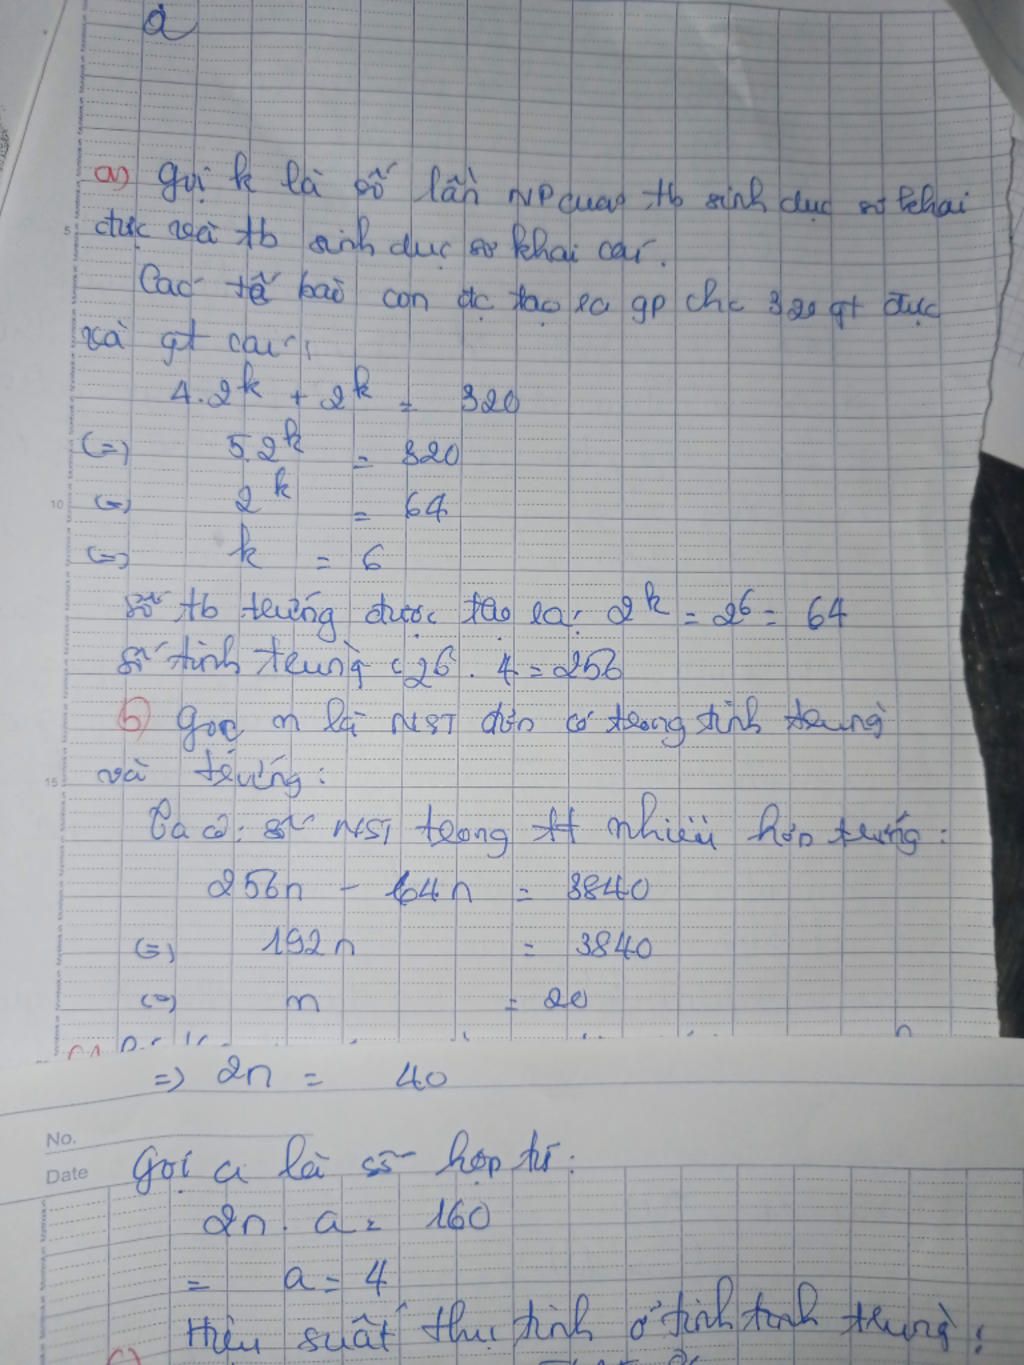 a
a) gọi k là số lần NP của tb sinh dục sơ khai
đực và tb sinh dục sơ khai cái.
Các tế bào con đc tạo ra gp cho 320 gt đực
và gt cái:
4.2^k + 2^k = 320
(=) 5.2^k = 320
(=) 2^k = 64
(=) k = 6
số tb trứng được tạo ra: 2^k = 2^6 = 64
số tinh trùng : 2^6 . 4 = 256
b) gọi n là NST đơn có trong tinh trùng
và trứng:
Ta có: số NST trong tt nhiều hơn trứng:
256n - 64n = 3840
(=) 192n = 3840
(=) n = 20
=> 2n = 40
No.
Date
Gọi a là số hợp tử:
2n . a = 160
= a = 4
Hiệu suất thụ tinh ở tinh trùng:
c)